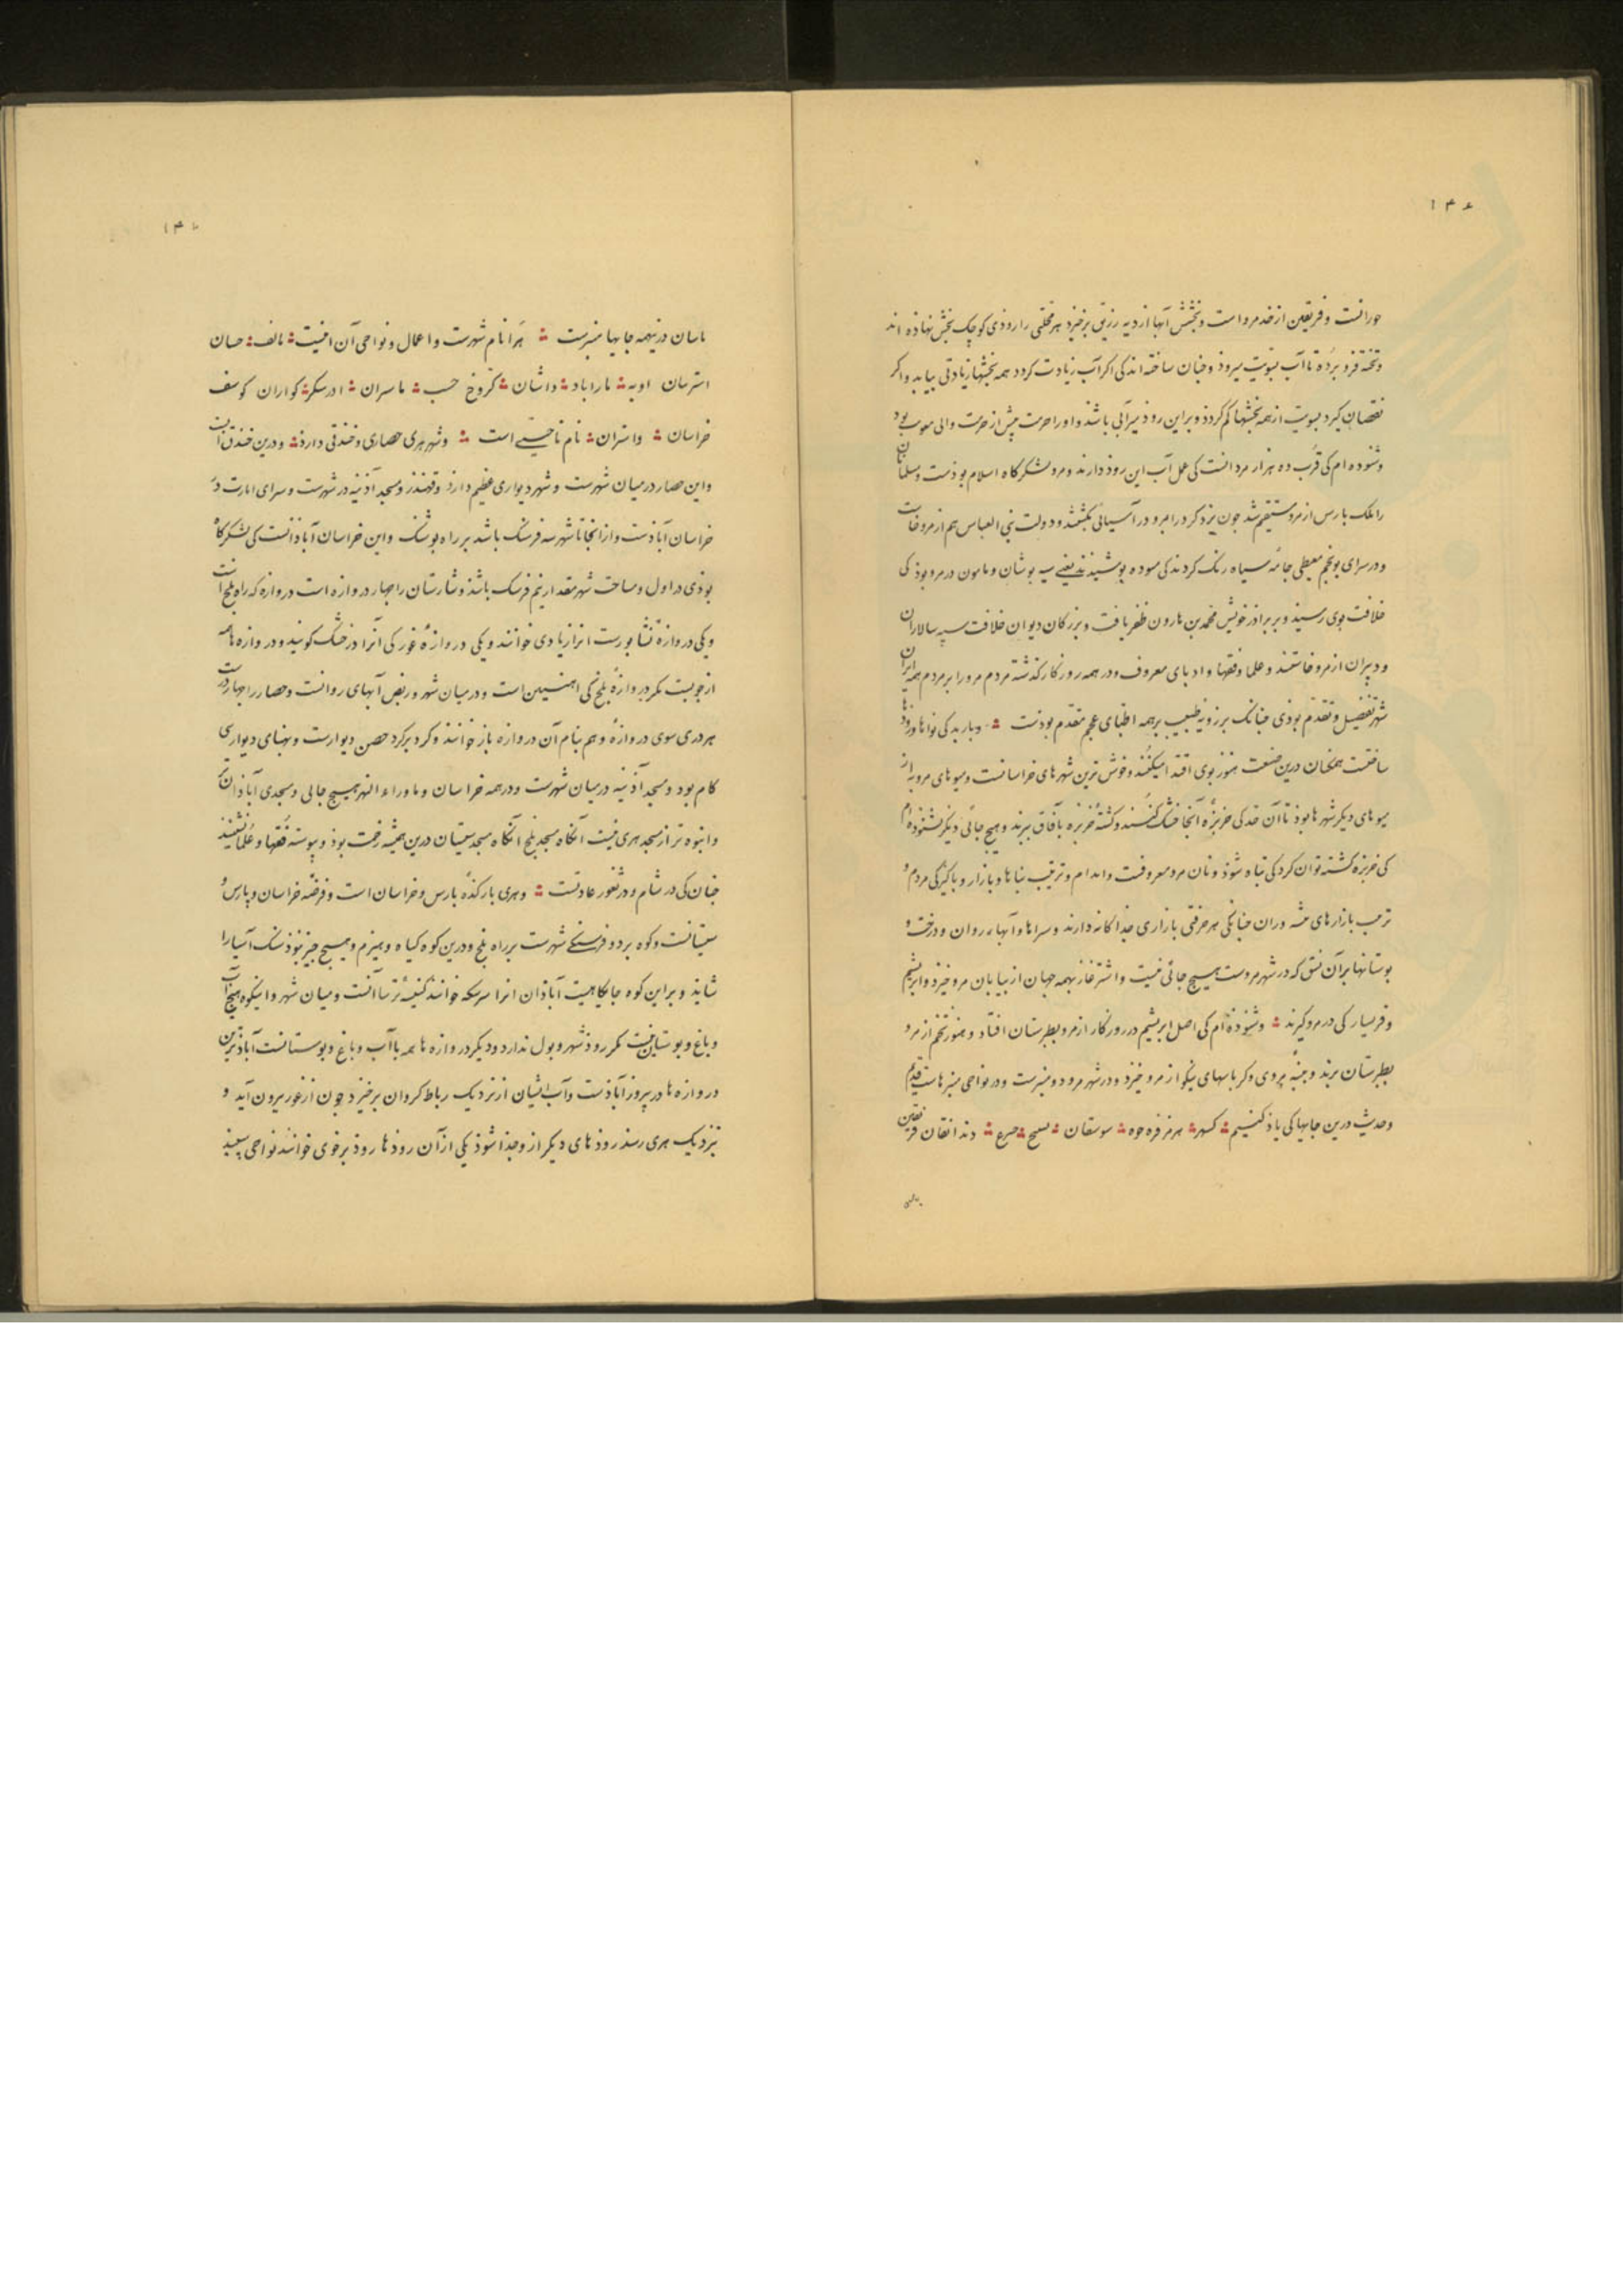 ۱۴۶
خورانست و قرینین از حد مرو است و بخشش آبها از دیه رزیق برخیزد هر محلتی را روذی کوچک بخش نهاذه اند
و تخته فرو برده تا آب بنوبت میروذ و چنان ساخته اند کی اکر آب زیادت کردد همه بخشها زیادتی بیابد و اکر
نقصان کیرد بسویت از همه بخشها کم کردد و برین روذ میرآبی باشد و او را حرمت بیش از حرمت والی معونت بود
و شنوده ام کی قرب ده هزار مرد انست کی عمل آب این روذ دارند و مرو لشکرکاه اسلام بوذست و مسلمانان
را ملک پارس از مرو مستقیم شد جون یزدکرد را بمرو در آسیائی بکشتند و دولت بنی العباس هم از مرو خاست
و در سرای بو نجم معیطی جامه سیاه رنک کردند کی مسوده پوشیدند یعنی سیه پوشان و مامون در مرو بوذ کی
خلافت بوی رسید و بر براذر خویش محمد بن هارون ظفر یافت و بزرکان دیوان خلافت سپه سالاران
و دبیران از مرو خاستند و علما و فقها و ادبای معروف و در همه روزکار کذشته مردم مرو را بر مردم همه ایران
شهر تفضیل و تقدم بوذی چنانک برزویه طبیب بر همه اطبای عجم مقدم بوذست و باربد کی نواها و روذها
ساختست همجنان درین صنعت هنوز بوی اقتدا میکنند و خوش ترین شهرهای خراسانست و میوهای مرو به از
میوهای دیکر شهرها بوذ تا آن حد کی خربزه آنجا خشک کنند و کشته خربزه بآفاق ببرند و هیچ جائی دیکر نشنوده ام
کی خربزه کشته توان کرد کی تباه نشوذ و نان مرو معروفست و اندام و ترتیب بناها و بازار و پاکیزکی مردم و
ترتیب بازارهای پیشه وران چنانکی هر حرفتی بازاری جداکانه دارند و سراها و آبهاء روان و درخت و
بوستانها بر آن نسق که در شهر مروست هیچ جائی نیست و اشترغاز بهمه جهان از بیابان مرو خیزد و ابریشم
و قز بسیار کی در مرو کیرند و شنوذه ام کی اصل ابریشم در روزکار از مرو بطبرستان افتاد و هنوز تخم از مرو
بطبرستان برند و پنبه مروی و کرباسهای نیکو از مرو خیزد و در شهر مرو دو منبرست و در نواحی منبرهاست قدیم
و حدیث درین جایها کی یاذ کنیم کسهر هرمزفره سوسقان دندانقان قرینین
باسان درینهمه جایها منبرست هرا نام شهرست و اعمال و نواحی آن اینست مالف حسان
استرسان اوبه ماراباد داشان کروخ حسب ماسران ادرسکر کواران کوسف
خراسان واشتران نام ناحیتی است و شهر هری حصاری و خندقی دارذ و درین خندق آبست
و این حصار در میان شهرست و شهر دیواری عظیم دارذ و قهندز و مسجد آذینه در شهرست و سرای امارت در
خراسان آباذست و از انجا تا شهر سه فرسنک باشد بر راه بوشنک و این خراسان آباذ انست کی لشکرکاه
بوذی در اول و مساحت شهر مقدار نیم فرسنک باشد و شارستان را جهار دروازه است دروازه که راه بلخ است
و یکی دروازه نشابورست انرا زیادی خوانند و یکی دروازه غور کی آنرا در خشک کویند و دروازه ها همه
از جوبست مکر دروازه بلخ کی اهنین است و در میان شهر و ربض آبهای روانست و حصار را جهار درست
هر دری سوی دروازه و هم بنام آن دروازه باز خوانند و کرد بر کرد حصن دیوارست و پهنای دیواری
کام بود و مسجد آذینه در میان شهرست و در همه خراسان و ماوراء النهر هیچ جائی و مسجدی آباذان تر
و انبوه تر از مسجد هری نیست آنکاه مسجد بلخ آنکاه مسجد سیستان درین همیشه زحمت بوذ و پیوسته فقها و علما نشینند
چنان کی در شام و در ثغور عادتست و هری بارکذه پارس و خراسان است و فرضه خراسان و پارس و
سیستانست و کوه بر دو فرسنکی شهرست بر راه بلخ و درین کوه کیاه و هیزم و هیچ چیز نبوذ سنک آسیا را
شاید و بر این کوه جایکاهیست آباذان انرا سرسکه خوانند کنیسه ترساانست و میان شهر و اینکوه هیچ آب
و باغ و بوستان نیست مکر روذ شهر و پول ندارد و دیکر دروازه ها همه با آب و باغ و بوستانست آباذترین
دروازه ها در پیروزآباذست و آب ایشان از نزدیک رباط کروان برخیزد جون از غور بیرون آید و
نزدیک هری رسد روذهای دیکر ازو جدا شوذ یکی از آن روذها روذ برخوی خوانند نواحی